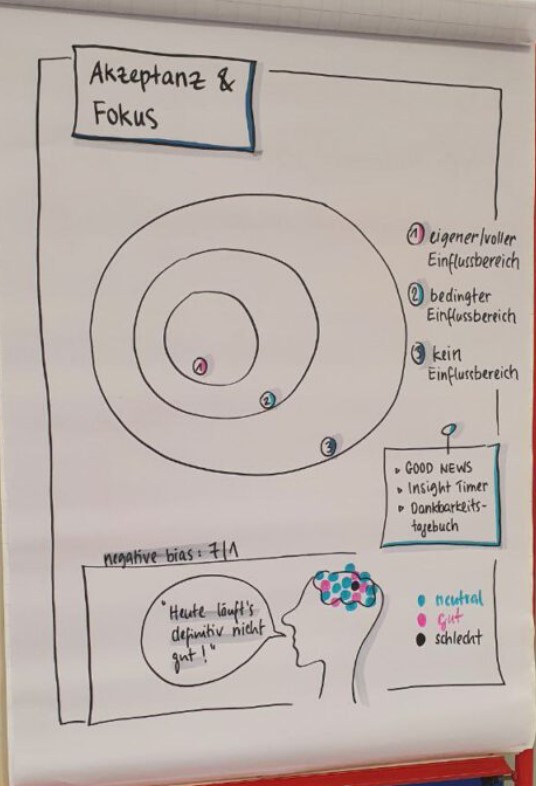 Akzeptanz &
Fokus
1
2
3
1 eigener/voller
Einflussbereich
2 bedingter
Einflussbereich
3 kein
Einflussbereich
▹ GOOD NEWS
▹ Insight Timer
▹ Dankbarkeits-
tagebuch
negative bias: 7/1
"Heute läuft's
definitiv nicht
gut!"
neutral
gut
schlecht